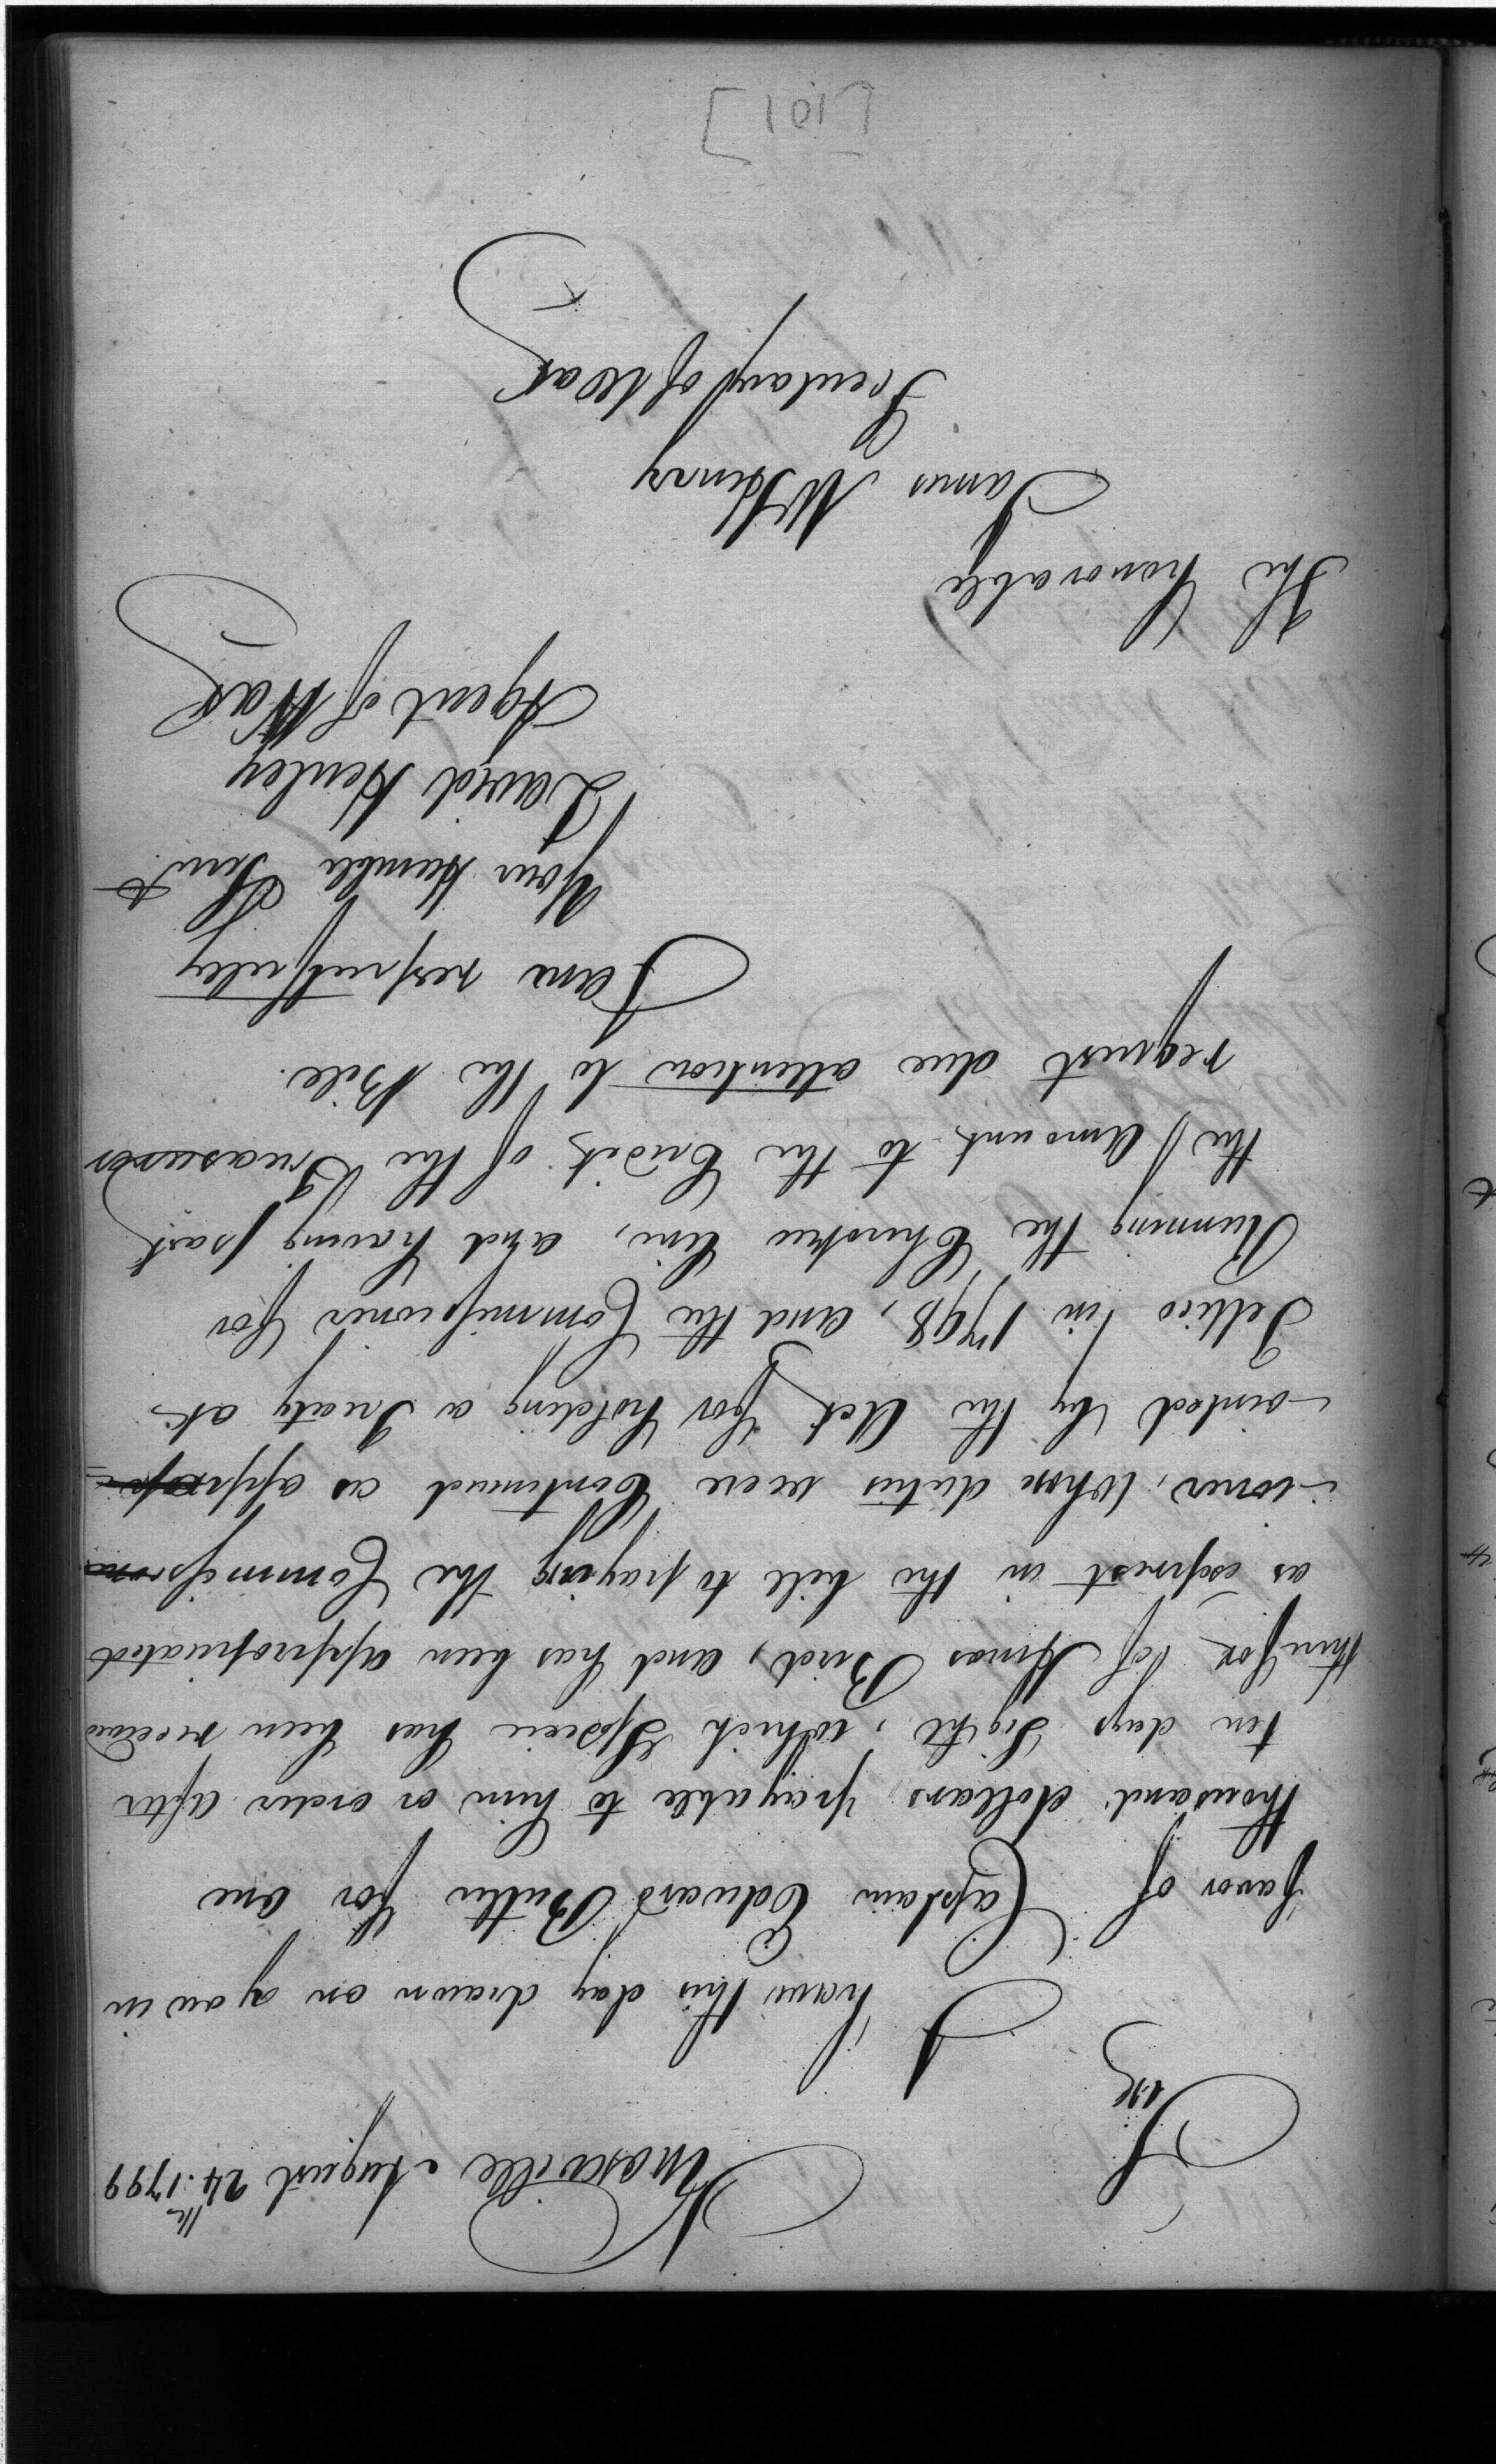 Knoxville August 24th. 1799
Sir
I have this day drawn on you in
favor of Captain Edward Butler for one
thousand dollars, payable to him or order after
ten days Sight, which Specie has been received
therefor of Amos Bird, and has been appropriated
as exprest in the bill to paying the Commission
-ioner, whose duties were Continued as appro
-ointed by the Act for holding a Treaty at
Tellico in 1798, and the Commissioner for
Running the Cherokee line, and having past
the Amount to the Credit of the Treasurer
request due attention to the Bill.
I am respectfully
Your Humble Servt
David Henley
Agent of War
The honorable
James McHenry
Secretary of War
[101]